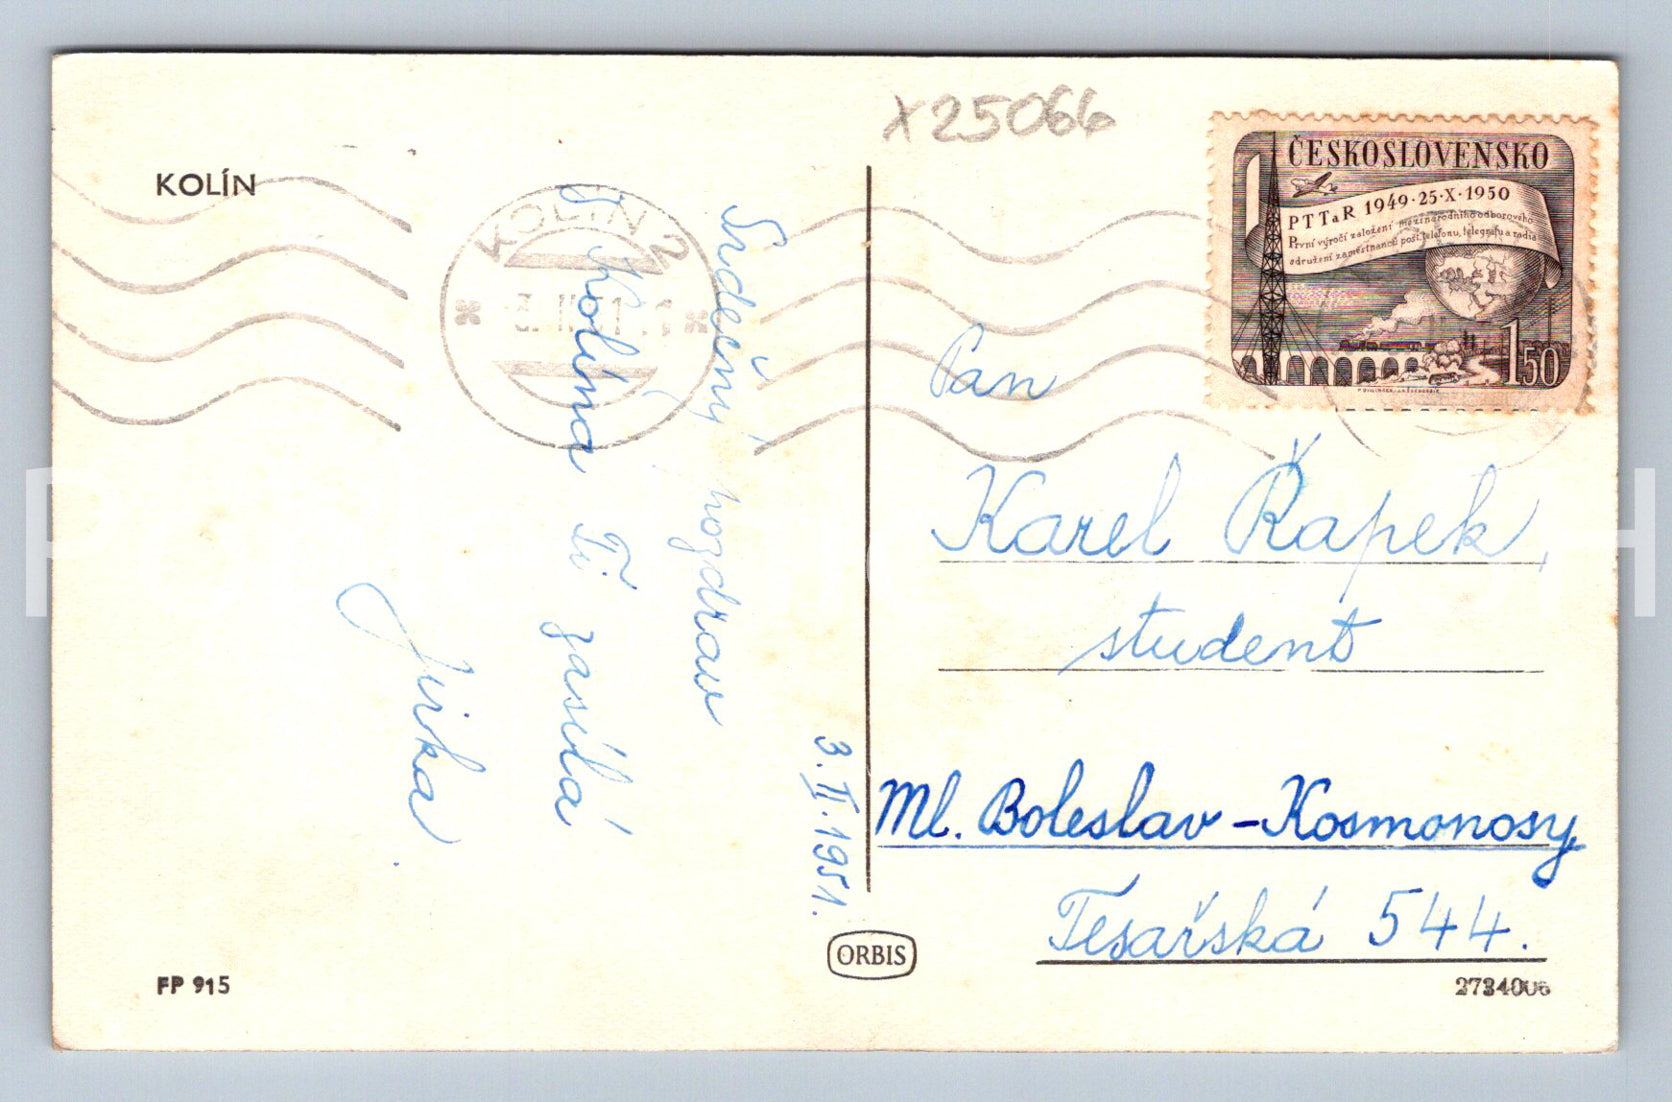 x25066
KOLÍN
KOLÍN 2
ČESKOSLOVENSKO
PTTaR 1949·25·X·1950
První výročí založení mezinárodního odborového
sdružení zaměstnanců pošt, telefonu, telegrafu a radia
1·50
Srdečný pozdrav
z Kolína Ti zasílá
Jirka.
3. II. 1951.
Pan
Karel Řapek,
student
Ml. Boleslav – Kosmonosy
Tesařská 544.
ORBIS
FP 915
2734006